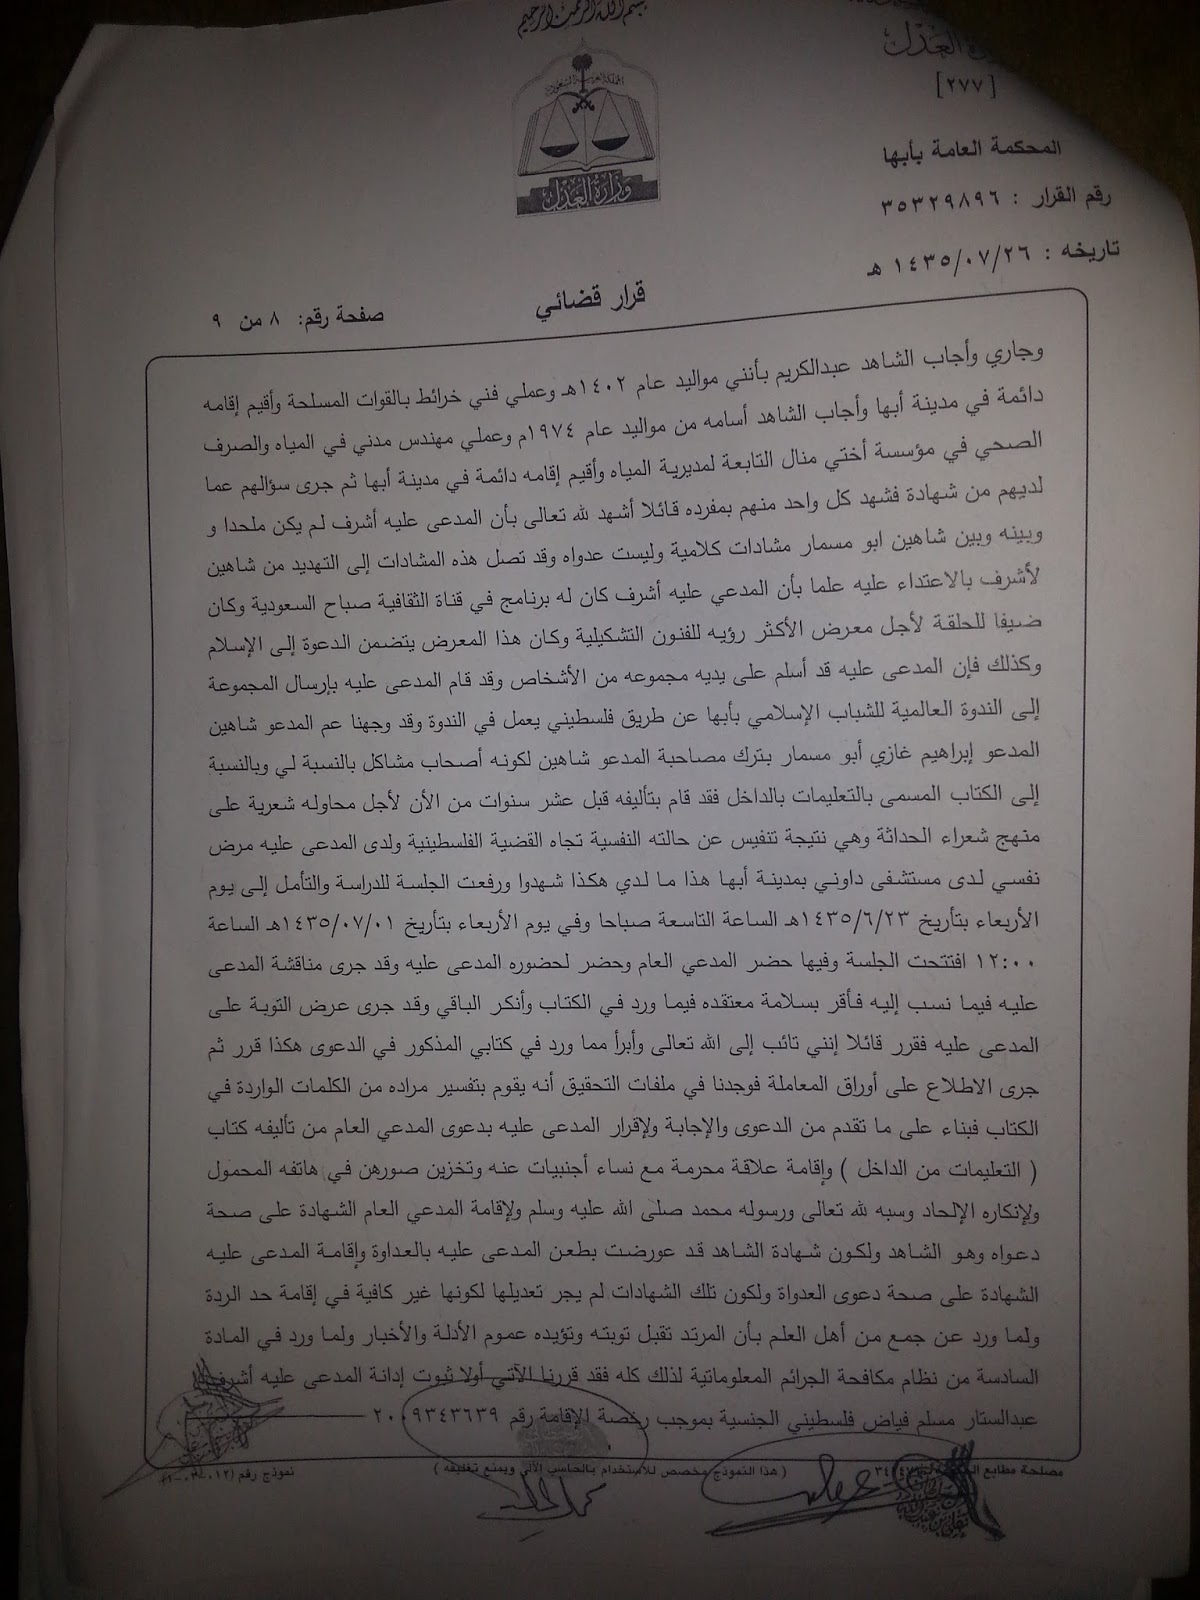 بسم الله الرحمن الرحيم
العدل
[٢٧٧]
المملكة العربية السعودية
وزارة العدل
المحكمة العامة بأبها
رقم القرار : ٣٥٣٢٩٨٩٦
تاريخه : ١٤٣٥/٠٧/٢٦ هـ
قرار قضائي
صفحة رقم: ٨ من ٩
وجاري وأجاب الشاهد عبدالكريم بأنني مواليد عام ١٤٠٢هـ وعملي فني خرائط بالقوات المسلحة وأقيم إقامه
دائمة في مدينة أبها وأجاب الشاهد أسامه من مواليد عام ١٩٧٤م وعملي مهندس مدني في المياه والصرف
الصحي في مؤسسة أختي منال التابعة لمديرية المياه وأقيم إقامه دائمة في مدينة أبها ثم جرى سؤالهم عما
لديهم من شهادة فشهد كل واحد منهم بمفرده قائلا أشهد لله تعالى بأن المدعى عليه أشرف لم يكن ملحدا و
وبينه وبين شاهين ابو مسمار مشادات كلامية وليست عدواه وقد تصل هذه المشادات إلى التهديد من شاهين
لأشرف بالاعتداء عليه علما بأن المدعي عليه أشرف كان له برنامج في قناة الثقافية صباح السعودية وكان
ضيفا للحلقة لأجل معرض الأكثر رؤيه للفنون التشكيلية وكان هذا المعرض يتضمن الدعوة إلى الإسلام
وكذلك فإن المدعى عليه قد أسلم على يديه مجموعه من الأشخاص وقد قام المدعى عليه بإرسال المجموعة
إلى الندوة العالمية للشباب الإسلامي بأبها عن طريق فلسطيني يعمل في الندوة وقد وجهنا عم المدعو شاهين
المدعو إبراهيم غازي أبو مسمار بترك مصاحبة المدعو شاهين لكونه أصحاب مشاكل بالنسبة لي وبالنسبة
إلى الكتاب المسمى بالتعليمات بالداخل فقد قام بتأليفه قبل عشر سنوات من الأن لأجل محاوله شعرية على
منهج شعراء الحداثة وهي نتيجة تنفيس عن حالته النفسية تجاه القضية الفلسطينية ولدى المدعى عليه مرض
نفسي لدى مستشفى داوني بمدينة أبها هذا ما لدي هكذا شهدوا ورفعت الجلسة للدراسة والتأمل إلى يوم
الأربعاء بتأريخ ١٤٣٥/٦/٢٣هـ الساعة التاسعة صباحا وفي يوم الأربعاء بتأريخ ١٤٣٥/٠٧/٠١هـ الساعة
١٢:٠٠ افتتحت الجلسة وفيها حضر المدعي العام وحضر لحضوره المدعى عليه وقد جرى مناقشة المدعى
عليه فيما نسب إليه فأقر بسلامة معتقده فيما ورد في الكتاب وأنكر الباقي وقد جرى عرض التوبة على
المدعى عليه فقرر قائلا إنني تائب إلى الله تعالى وأبرأ مما ورد في كتابي المذكور في الدعوى هكذا قرر ثم
جرى الاطلاع على أوراق المعاملة فوجدنا في ملفات التحقيق أنه يقوم بتفسير مراده من الكلمات الواردة في
الكتاب فبناء على ما تقدم من الدعوى والإجابة ولإقرار المدعى عليه بدعوى المدعي العام من تأليفه كتاب
( التعليمات من الداخل ) وإقامة علاقة محرمة مع نساء أجنبيات عنه وتخزين صورهن في هاتفه المحمول
ولإنكاره الإلحاد وسبه لله تعالى ورسوله محمد صلى الله عليه وسلم ولإقامة المدعي العام الشهادة على صحة
دعواه وهو الشاهد ولكون شهادة الشاهد قد عورضت بطعن المدعى عليه بالعداوة وإقامة المدعى عليه
الشهادة على صحة دعوى العدواة ولكون تلك الشهادات لم يجر تعديلها لكونها غير كافية في إقامة حد الردة
ولما ورد عن جمع من أهل العلم بأن المرتد تقبل توبته وتؤيده عموم الأدلة والأخبار ولما ورد في المادة
السادسة من نظام مكافحة الجرائم المعلوماتية لذلك كله فقد قررنا الآتي أولا ثبوت إدانة المدعى عليه أشرف
عبدالستار مسلم فياض فلسطيني الجنسية بموجب رخصة الإقامة رقم ٢٠٠٩٣٤٣٦٣٩
مصلحة مطابع
( هذا النموذج مخصص للاستخدام بالحاسب الآلي ويمنع تغليفه )
نموذج رقم